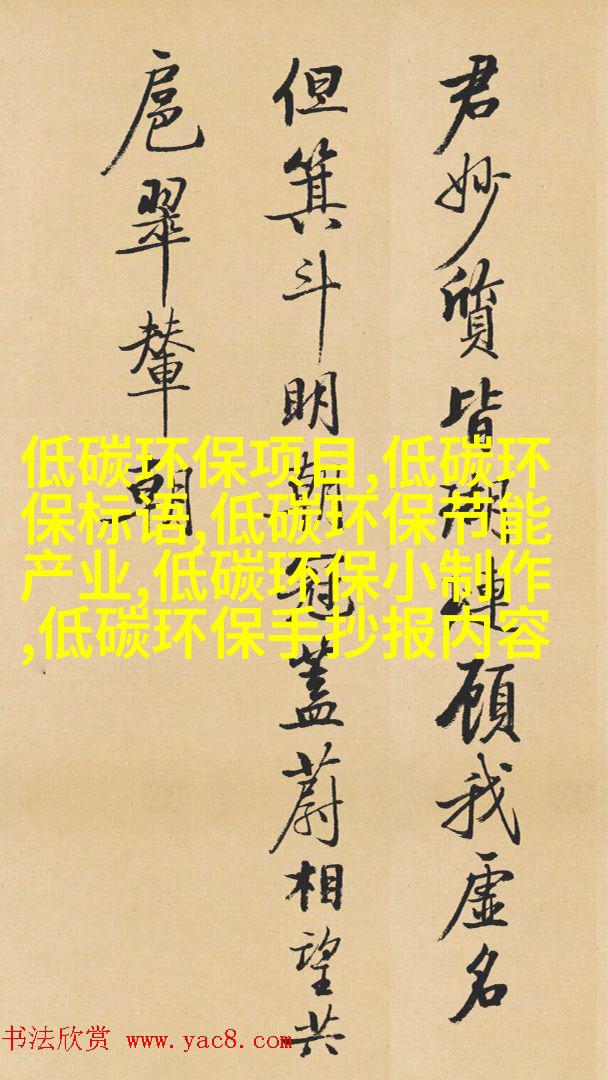 君妙質皆瑚璉顧我虛名
但箕斗明朝冠蓋蔚相望共
扈翠輦朝
低碳环保项目,低碳环
保标语,低碳环保节能
产业,低碳环保小制作
,低碳环保手抄报内容
书法欣赏 www.yac8.com